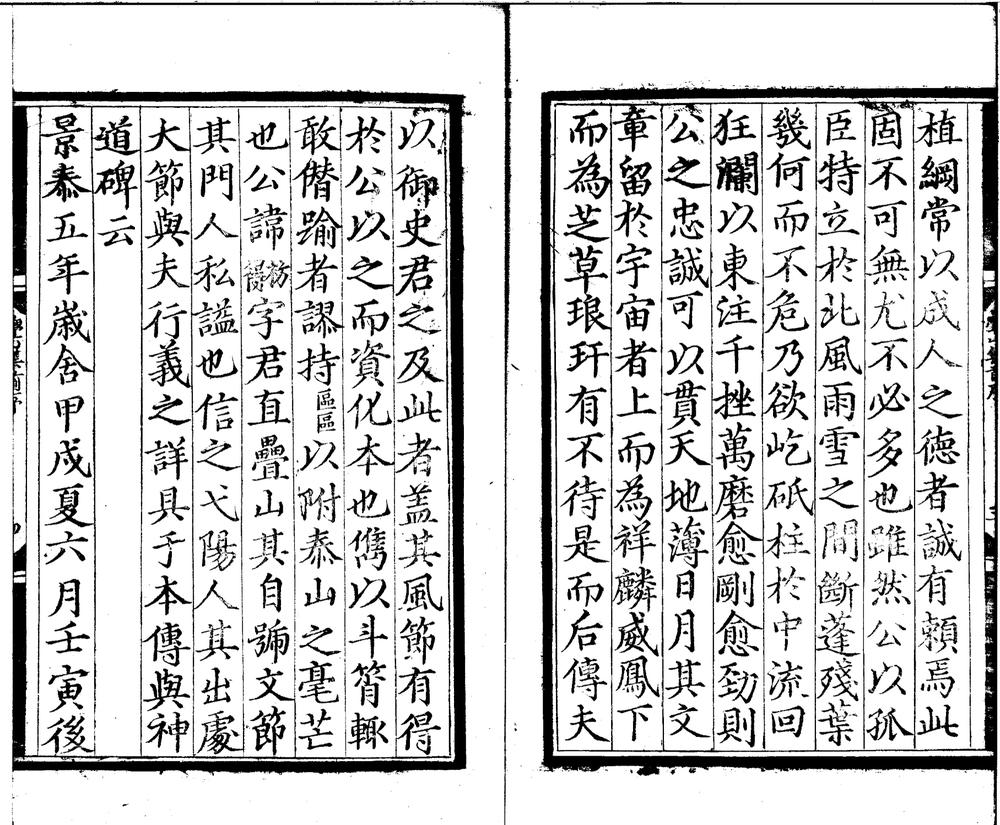 植綱常以成人之德者誠有賴焉此
固不可無尤不必多也雖然公以孤
臣特立於北風雨雪之間斷蓬殘葉
幾何而不危乃欲屹砥柱於中流回
狂瀾以東注千挫萬磨愈剛愈勁則
公之忠誠可以貫天地薄日月其文
章留於宇宙者上而為祥麟威鳳下
而為芝草琅玕有不待是而后傳夫
以御史君之及此者蓋其風節有得
於公以之而資化本也儁以斗筲輙
敢僭踰者謬持區區以附泰山之毫芒
也公諱枋得字君直疊山其自號文節
其門人私謚也信之弋陽人其出處
大節與夫行義之詳具于本傳與神
道碑云
景泰五年歲舍甲戌夏六月壬寅後